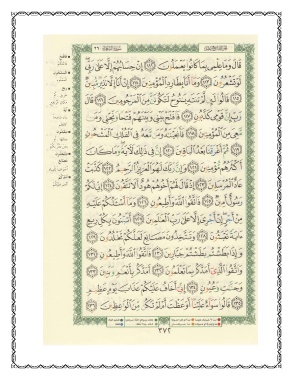 قَالَ وَمَا عِلْمِي بِمَا كَانُوا يَعْمَلُونَ ١١٢ إِنْ حِسَابُهُمْ إِلَّا عَلَىٰ رَبِّي
لَوْ تَشْعُرُونَ ١١٣ وَمَا أَنَا بِطَارِدِ الْمُؤْمِنِينَ ١١٤ إِنْ أَنَا إِلَّا نَذِيرٌ مُّبِينٌ
١١٥ قَالُوا لَئِن لَّمْ تَنتَهِ يَا نُوحُ لَتَكُونَنَّ مِنَ الْمَرْجُومِينَ ١١٦ قَالَ
رَبِّ إِنَّ قَوْمِي كَذَّبُونِ ١١٧ فَافْتَحْ بَيْنِي وَبَيْنَهُمْ فَتْحًا وَنَجِّنِي وَمَن
مَّعِيَ مِنَ الْمُؤْمِنِينَ ١١٨ فَأَنجَيْنَاهُ وَمَن مَّعَهُ فِي الْفُلْكِ الْمَشْحُونِ
١١٩ ثُمَّ أَغْرَقْنَا بَعْدُ الْبَاقِينَ ١٢٠ إِنَّ فِي ذَٰلِكَ لَآيَةً وَمَا كَانَ
أَكْثَرُهُم مُّؤْمِنِينَ ١٢١ وَإِنَّ رَبَّكَ لَهُوَ الْعَزِيزُ الرَّحِيمُ ١٢٢ كَذَّبَتْ
عَادٌ الْمُرْسَلِينَ ١٢٣ إِذْ قَالَ لَهُمْ أَخُوهُمْ هُودٌ أَلَا تَتَّقُونَ ١٢٤ إِنِّي لَكُمْ
رَسُولٌ أَمِينٌ ١٢٥ فَاتَّقُوا اللَّهَ وَأَطِيعُونِ ١٢٦ وَمَا أَسْأَلُكُمْ عَلَيْهِ
مِنْ أَجْرٍ إِنْ أَجْرِيَ إِلَّا عَلَىٰ رَبِّ الْعَالَمِينَ ١٢٧ أَتَبْنُونَ بِكُلِّ رِيعٍ
آيَةً تَعْبَثُونَ ١٢٨ وَتَتَّخِذُونَ مَصَانِعَ لَعَلَّكُمْ تَخْلُدُونَ ١٢٩
وَإِذَا بَطَشْتُم بَطَشْتُمْ جَبَّارِينَ ١٣٠ فَاتَّقُوا اللَّهَ وَأَطِيعُونِ ١٣١
وَاتَّقُوا الَّذِي أَمَدَّكُم بِمَا تَعْلَمُونَ ١٣٢ أَمَدَّكُم بِأَنْعَامٍ وَبَنِينَ ١٣٣
وَجَنَّاتٍ وَعُيُونٍ ١٣٤ إِنِّي أَخَافُ عَلَيْكُمْ عَذَابَ يَوْمٍ عَظِيمٍ
١٣٥ قَالُوا سَوَاءٌ عَلَيْنَا أَوَعَظْتَ أَمْ لَمْ تَكُن مِّنَ الْوَاعِظِينَ ١٣٦
٣٧٢